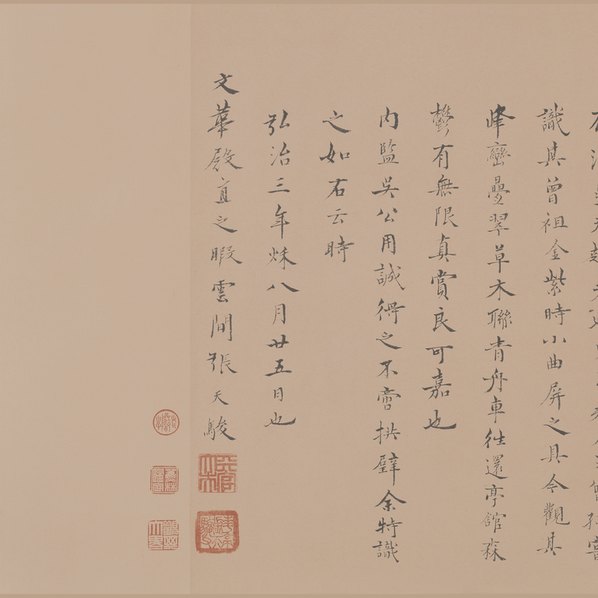 識其曾祖金紫時小曲屏之具今觀其
峰巒疊翠草木聯青舟車往還亭館森
欝有無限真賞良可嘉也
內監吳公用誠得之不啻拱璧余特識
之如右云時
弘治三年秌八月廿五日也
文華殿直之暇雲間張天駿